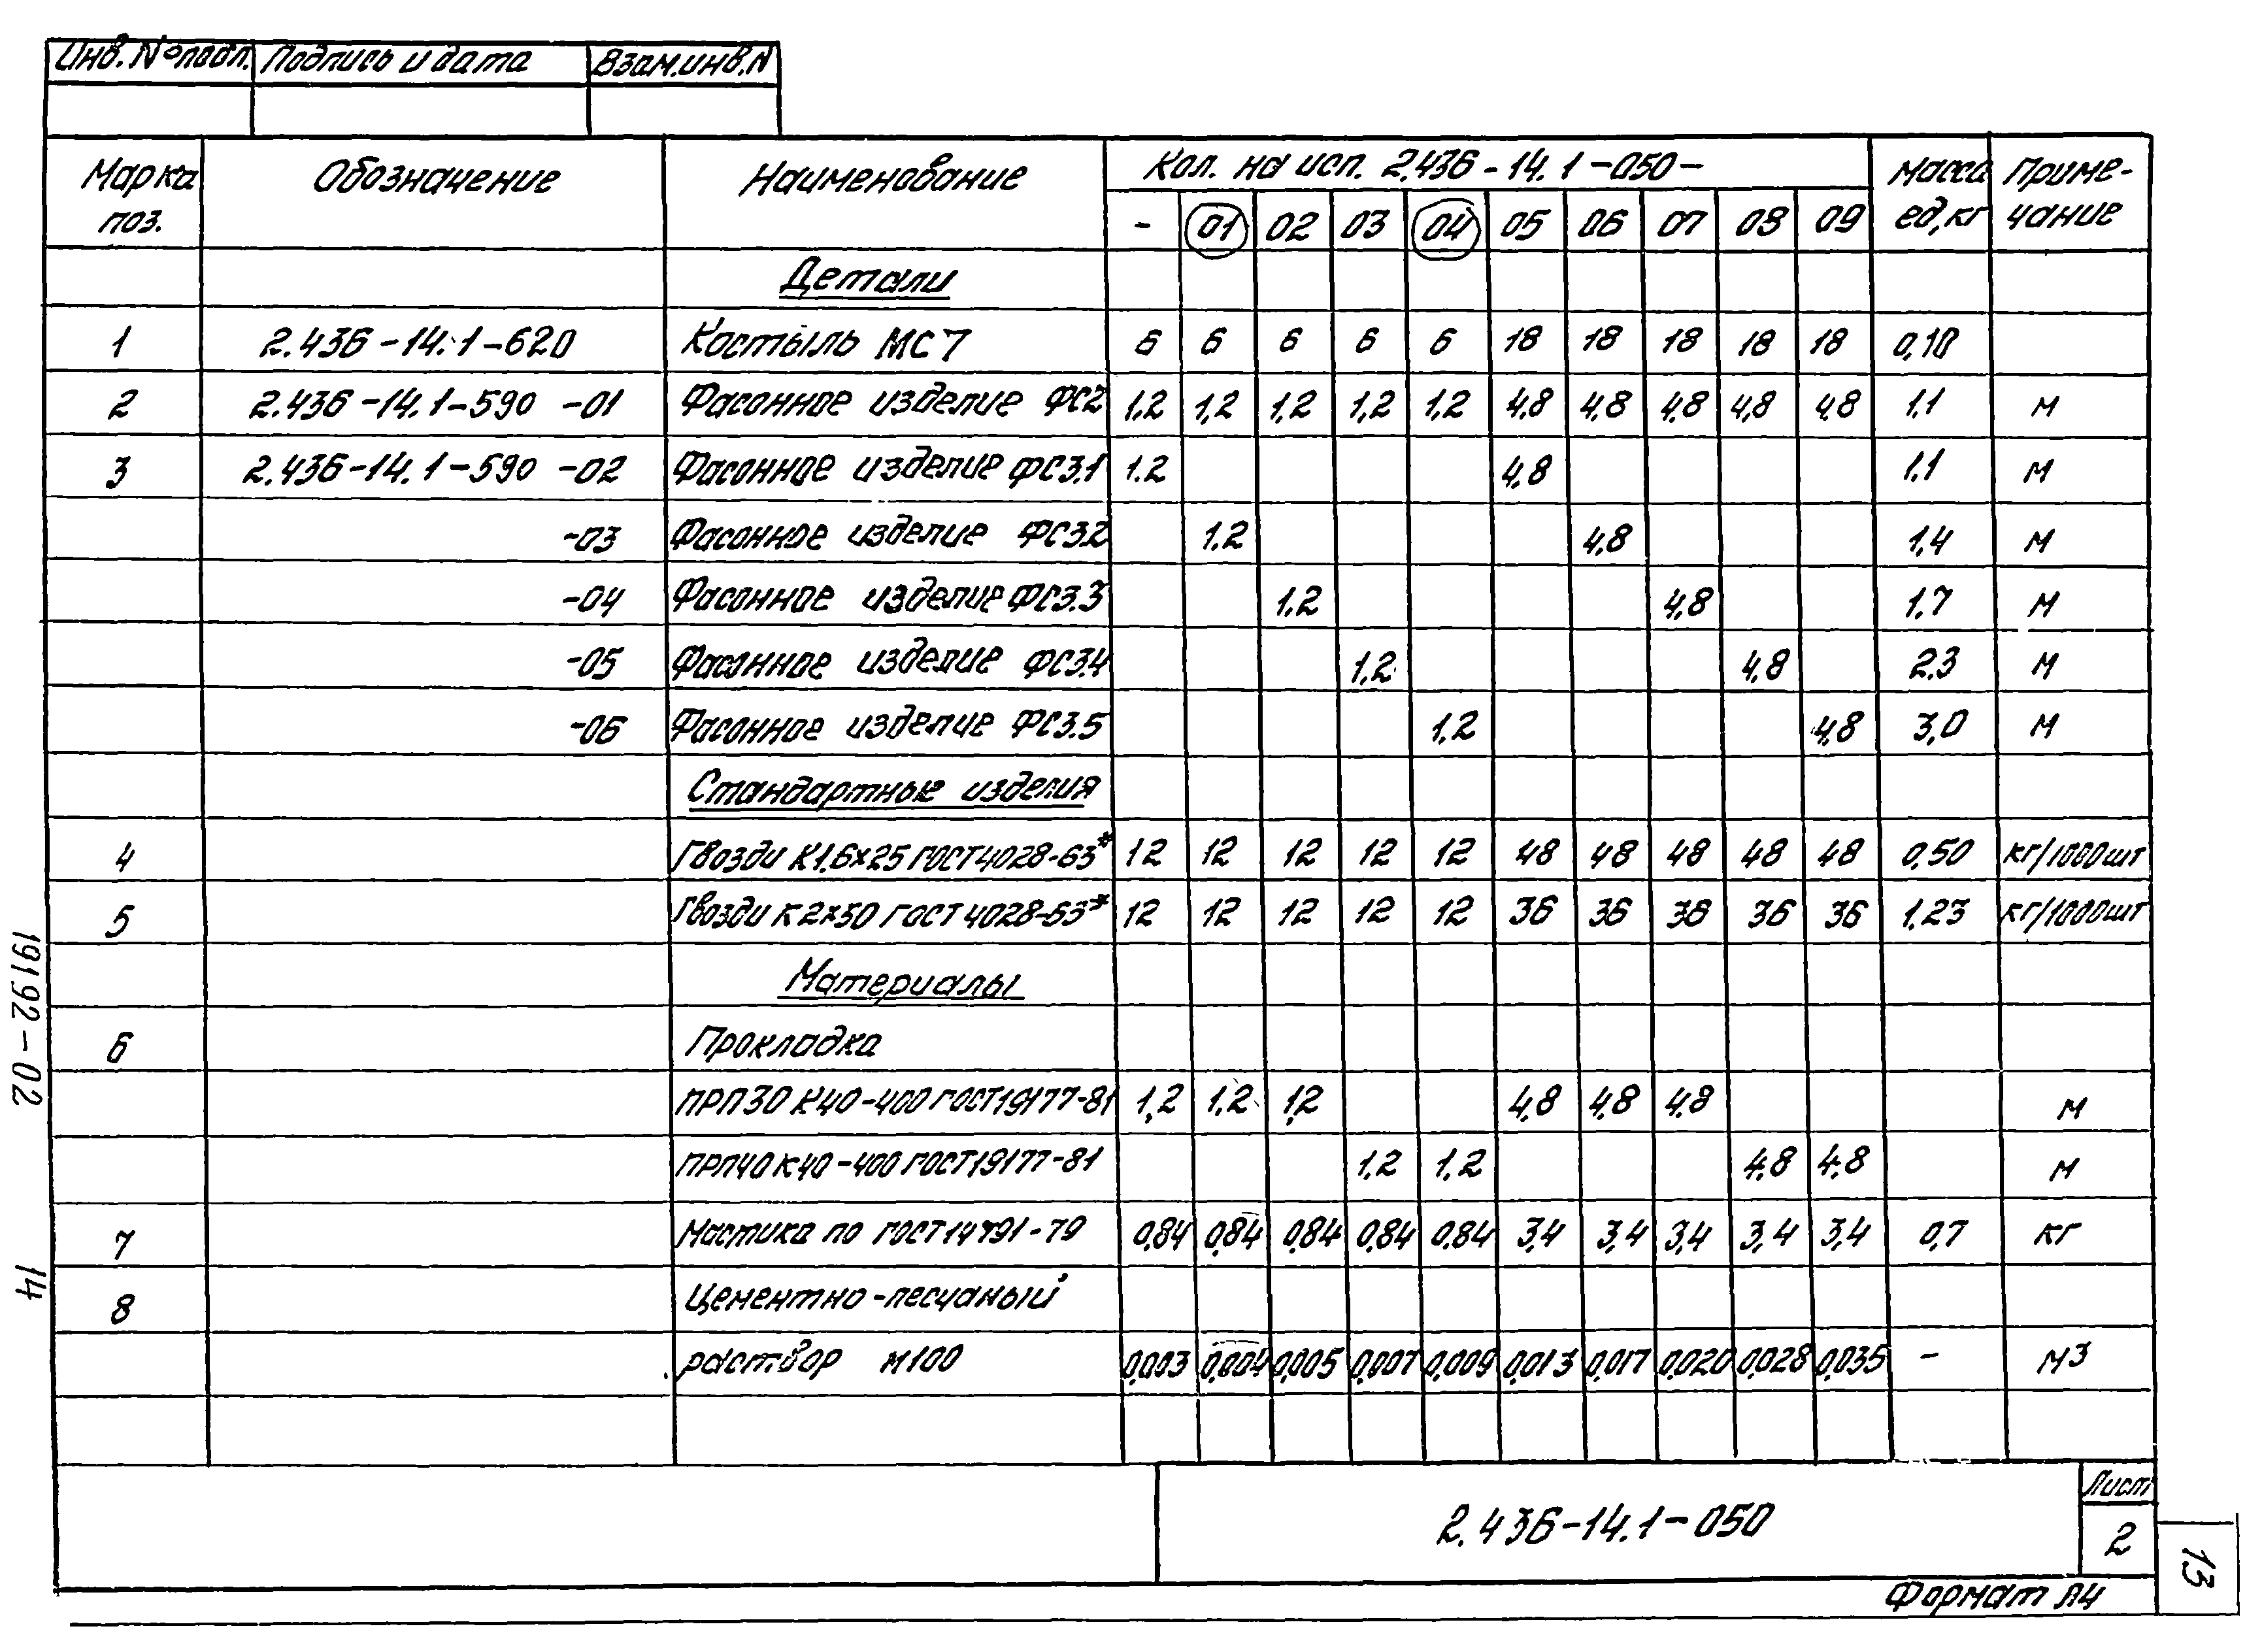 Инв. № подл. Подпись и дата Взам.инв.N
Марка поз. Обозначение Наименование Кол. на исп. 2.436-14.1-050- Масса ед,кг Приме-чание
- 01 02 03 04 05 06 07 08 09
Детали
1 2.436-14.1-620 Костыль МС7 6 6 6 6 6 18 18 18 18 18 0,10
2 2.436-14.1-590 -01 Фасонное изделие ФС2 1,2 1,2 1,2 1,2 1,2 4,8 4,8 4,8 4,8 4,8 1,1 м
3 2.436-14.1-590 -02 Фасонное изделие ФС3.1 1.2 4,8 1,1 м
-03 Фасонное изделие ФС3.2 1.2 4,8 1,4 м
-04 Фасонное изделие ФС3.3 1,2 4,8 1,7 м
-05 Фасонное изделие ФС3.4 1,2 4,8 2,3 м
-06 Фасонное изделие ФС3.5 1,2 4,8 3,0 м
Стандартные изделия
4 Гвозди К1,6х25 ГОСТ4028-63* 12 12 12 12 12 48 48 48 48 48 0,50 кг/1000шт
5 Гвозди К2х50 ГОСТ 4028-63* 12 12 12 12 12 36 36 36 36 36 1,23 кг/1000шт
Материалы
6 Прокладка
ПРП30 К40-400 ГОСТ19177-81 1,2 1,2 1,2 4,8 4,8 4,8 м
ПРП40 К40-400 ГОСТ19177-81 1,2 1,2 4,8 4,8 м
7 Мастика по ГОСТ14791-79 0,84 0,84 0,84 0,84 0,84 3,4 3,4 3,4 3,4 3,4 0,7 кг
8 Цементно-песчаный
раствор М100 0,003 0,004 0,005 0,007 0,009 0,013 0,017 0,020 0,028 0,035 - м3
2.436-14.1-050
Лист
2
Формат А4
13
19192-02 14